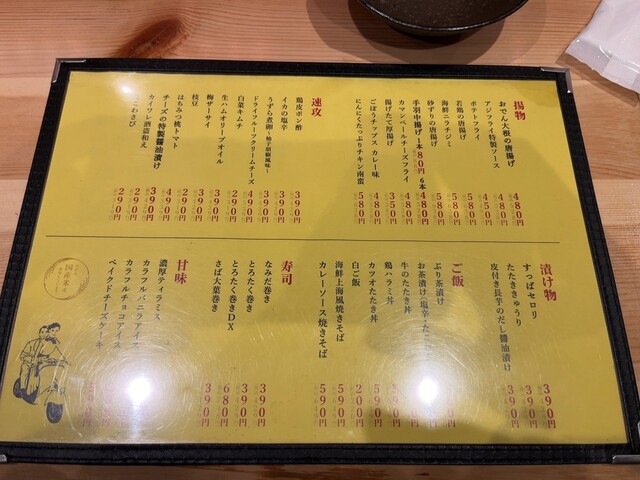 揚物
おでん大根の唐揚げ 480円
アジフライ特製ソース 450円
ポテトフライ 480円
若鶏の唐揚げ 580円
海鮮ニラチヂミ 580円
砂ずりの唐揚げ 480円
手羽中揚げ 1本80円 6本480円
カマンベールチーズフライ 480円
揚げたて厚揚げ 350円
ごぼうチップス カレー味 480円
にんにくたっぷりチキン南蛮 580円
速攻
鶏皮ポン酢 390円
イカの塩辛 390円
うずら煮卵～柚子胡椒風味～ 390円
ドライフルーツクリームチーズ 490円
白菜キムチ 290円
生ハムオリーブオイル
梅ザーサイ 390円
枝豆
はちみつ桃トマト
チーズの特製醤油漬け 390円
カイワレ酒盗和え 290円
たこわさび 290円
漬け物
すっぱセロリ 390円
たたききゅうり 390円
皮付き長芋のだし醤油漬け 390円
ご飯
ぶり茶漬け
お茶漬け
牛のたたき丼
鶏ハラミ丼
カツオたたき丼 590円
白ご飯 200円
海鮮上海風焼きそば 590円
カレーソース焼きそば 590円
寿司
なみだ巻き 390円
とろたく巻き 390円
とろたく巻きDX 680円
さば大葉巻き 390円
甘味
濃厚ティラミス
カラフルバニラアイス
カラフルチョコアイス
ベイクドチーズケーキ
国産米